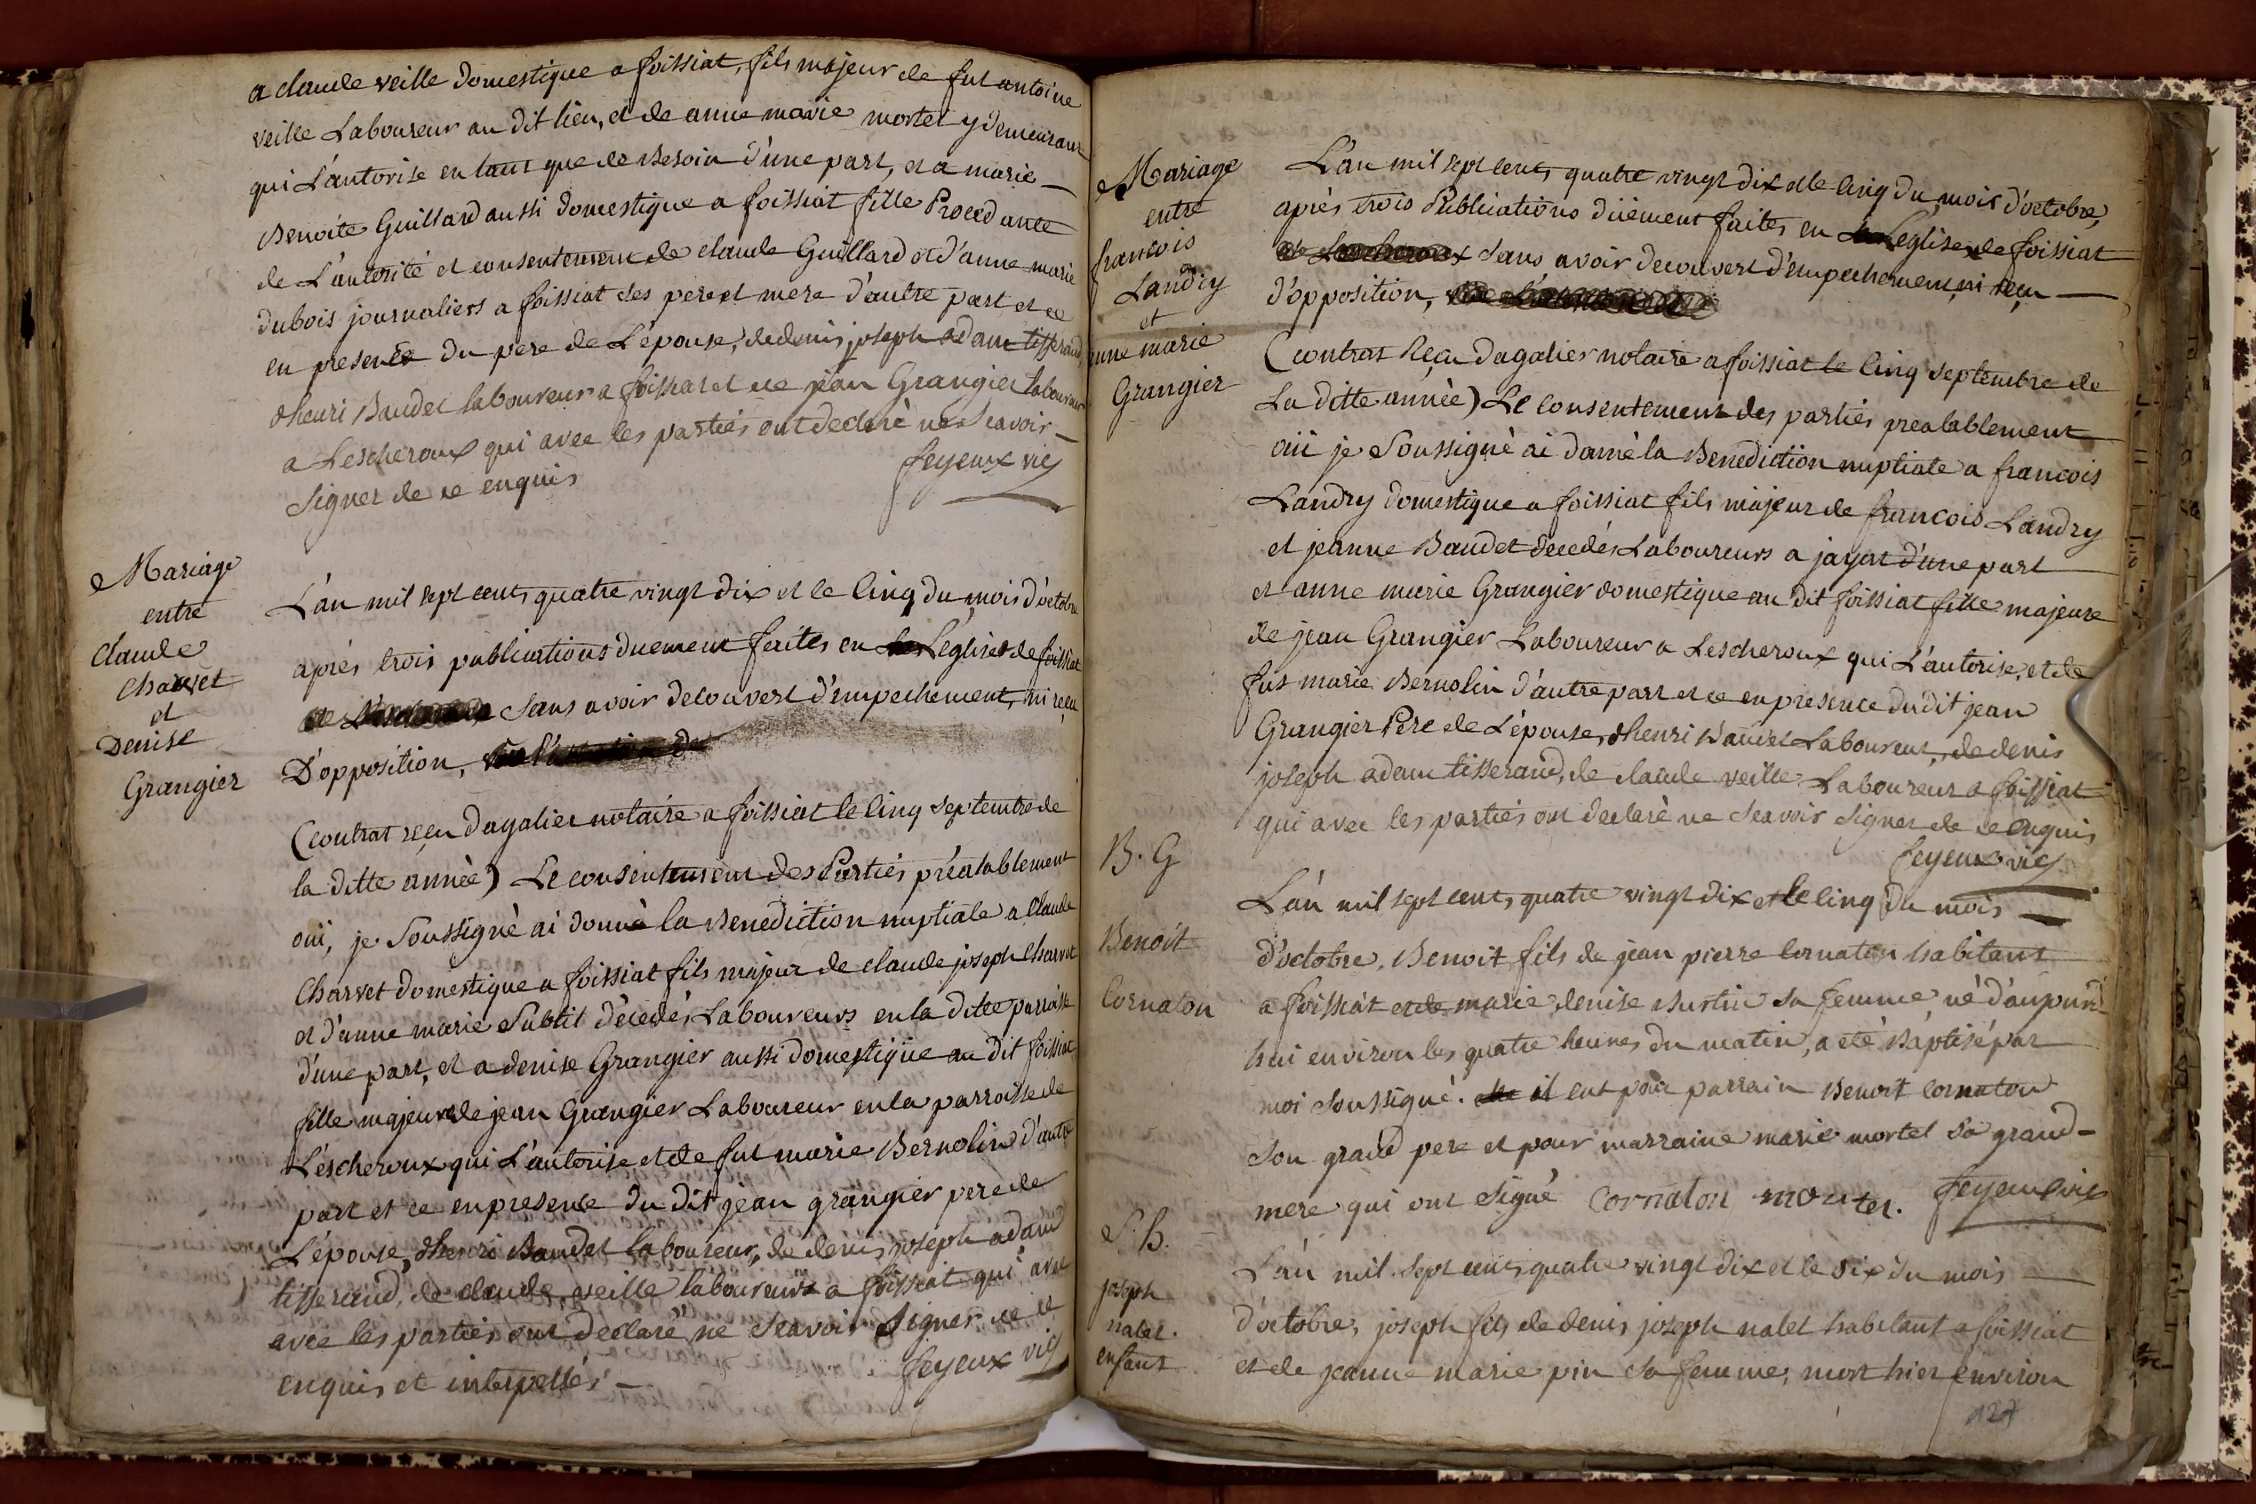 a claude veille domestique a foissiat, fils majeur de fut antoine
veille Laboureur au dit lieu, et de anne marie mortel y demeurant
qui L'autorise en tant que de Besoin d'une part, et a marie
Benoite Guillard aussi domestique a foissiat fille Procedante
de L'autorité et consentement de claude Guillard et d'anne marie
dubois journaliers a foissiat ses pere et mere d'autre part et ce
en presence du pere de L'epouse, de denis joseph adam tisserand,
d'henri Baudet laboureur a foissiat et de jean Grangier laboureur
a Lescheroux qui avec les parties ont declaré ne Scavoir
signer de ce enquis
feyeux vic
Mariage
entre
Claude
Charvet
et
Denise
Grangier
L'an mil sept cent, quatre vingt dix et le Cinq du mois d'octobre
aprés trois publications duement faites en L'eglise de foissiat
sans avoir decouvert d'empechement, ni reçu
D'opposition,
(contrat reçu Dagalier notaire a foissiat le Cinq septembre de
la ditte année) Le consentement des Parties préalablement
oui, je Soussigné ai donné la Benediction nuptiale a Claude
Charvet domestique a foissiat fils majeur de claude joseph Charvet
et d'anne marie Subtil décedés Laboureurs en la ditte parroisse
d'une part, et a denise Grangier aussi domestique au dit foissiat
fille majeure de jean Grangier Laboureur en la parroisse de
Lescheroux qui L'autorise et de fut marie Bernolin d'autre
part et ce en presence du dit jean grangier pere de
L'épouse, d'henri Baudet laboureur, de denis joseph adam
tisserand, de claude veille laboureurs a foissiat qui avec
avec les parties ont declaré ne Scavoir signer de ce
enquis et interpellés
feyeux vic
Mariage
entre
francois
Landry
et
anne marie
Grangier
L'an mil sept cent, quatre vingt dix et le Cinq du mois d'octobre,
aprés trois Publications düement faites en L'eglise de foissiat
sans avoir decouvert d'empechement, ni reçu
d'opposition,
(contrat Reçu Dagalier notaire a foissiat le Cinq septembre de
La ditte année) Le consentement des parties prealablement
oüi je Soussigné ai donné la Benediction nuptiale a francois
Landry domestique a foissiat fils majeur de francois Landry
et jeanne Baudet decedés Laboureurs a jayat d'une part
et anne marie Grangier domestique au dit foissiat fille majeure
de jean Grangier Laboureur a Lescheroux qui L'autorise, et de
fut marie Bernolin d'autre part et ce en presence du dit jean
Grangier Pere de L'épouse, d'henri Baudet Laboureur, de denis
joseph adam tisserand, de claude veille Laboureur a foissiat
qui avec les parties ont declaré ne Scavoir signer de ce enquis
feyeux vic
B. G
Benoit
Cornaton
L'an mil sept cent, quatre vingt dix et le Cinq du mois
d'octobre, Benoit fils de jean pierre Cornaton habitant
a foissiat et de marie denise Burtin sa femme né d'aujourd
hui environ les quatre heures du matin, a eté Baptisé par
moi soussigné. il eut pour parrain Benoit Cornaton
son grand pere et pour marraine marie mortel sa grand-
mere qui ont signé Cornaton morter. feyeux vic
S. h.
joseph
nalet.
enfant
L'an mil sept cent, quatre vingt dix et le six du mois
d'octobre, joseph fils de denis joseph nalet habitant a foissiat
et de jeanne marie pin sa femme, mort hier environ
127